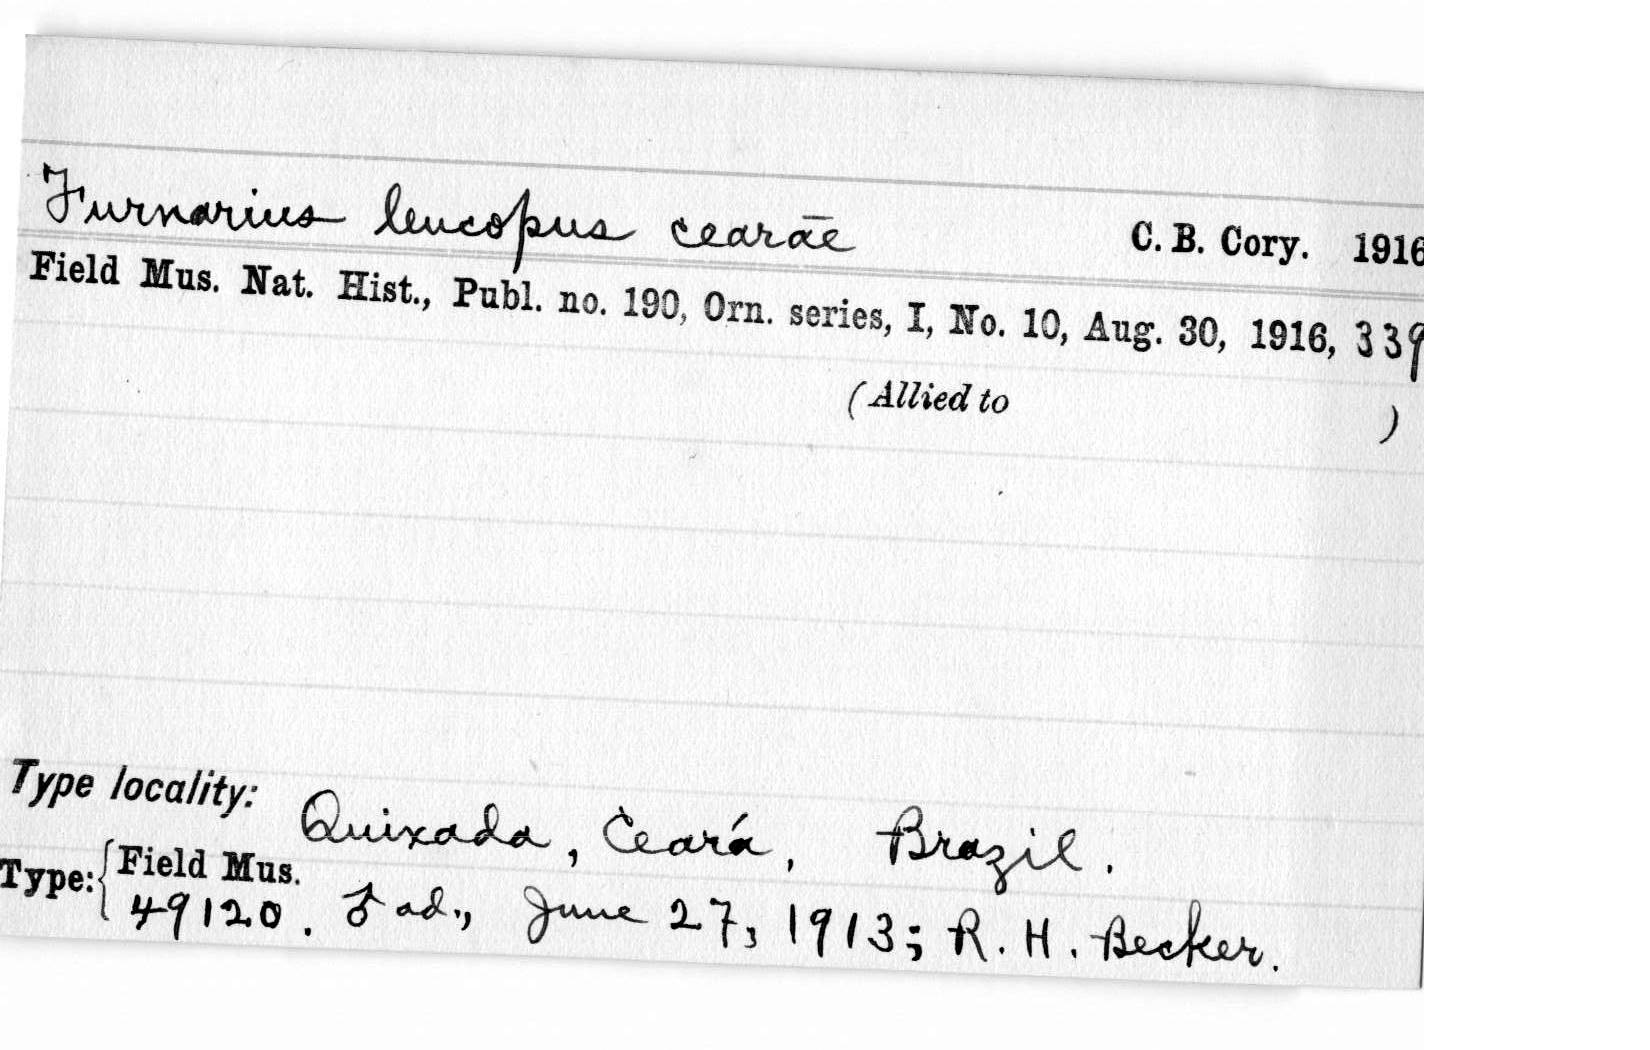 Furnarius leucopus cearae C. B. Cory. 1916
Field Mus. Nat. Hist., Publ. no. 190, Orn. series, I, No. 10, Aug. 30, 1916, 339
(Allied to )
Type locality: Quixada, Ceará, Brazil.
Type: { Field Mus.
49120. ♂ ad., June 27, 1913; R. H. Becker.